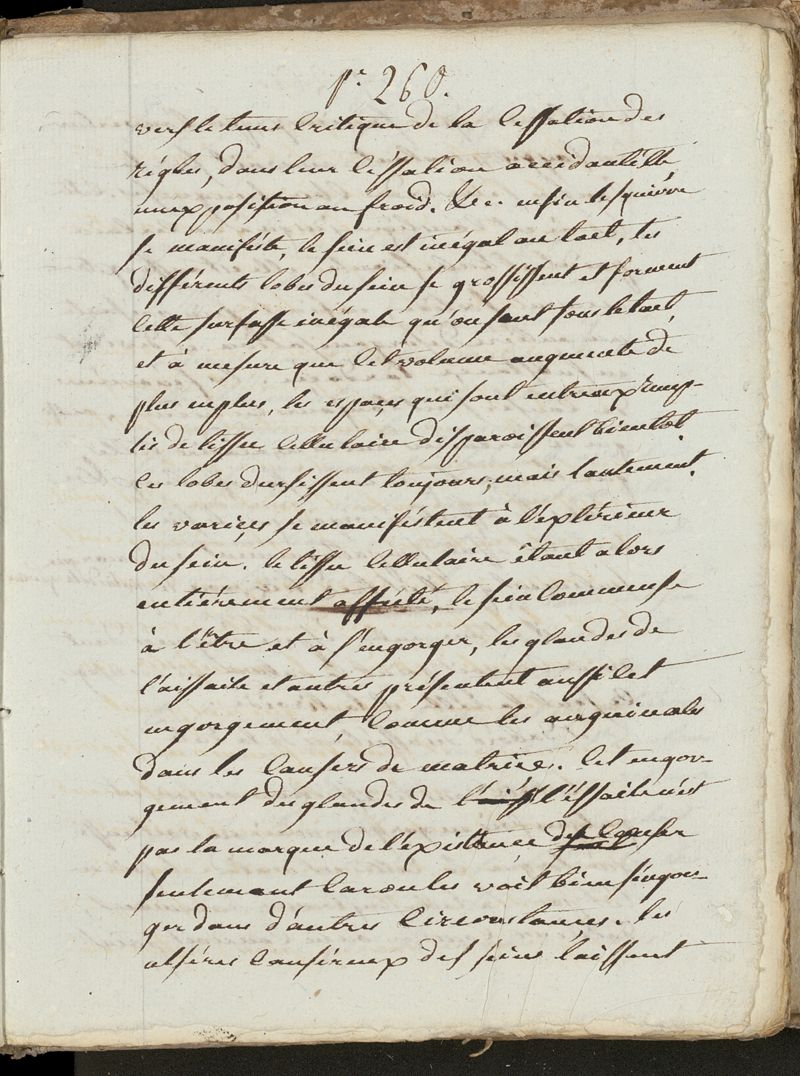 pe 260.
vers le tems Critique de la Cessation des
régles, dans leur Céssation accidantelle,
une exposition au froid. &c. enfin le squirre
se manifeste, le sein est inégal au tact, les
différents lobes du sein se grossissent et forment
Cette surfasse inégale qu'on sant sous le tact,
et à mesure que Cet volume augmente de
plus enplus, les espaces qui sont entreeux remp-
lis de tissu Cellulaire disparoissent bientot
Ces lobes dursissent toujours, mais lantement.
les varices se maniféstent à l'éxptérieur
du sein. le tissu Cellulaire étant alors
entiérement afféctè, le sein Commense
à l'être et à s'engorger, les glandes de
l'aissaile et autres présentent aussi Cet
engorgement, Comme les anguinales
dans les Cansers de matrice. Cet engor-
gement des glandes de l'éssaile n'est
pas la marque de l'éxistance du Canser
seulemant Car on les voit bien s'engor-
ger dans d'autres Circonstances. les
ulséres Canséreux des seins laissent